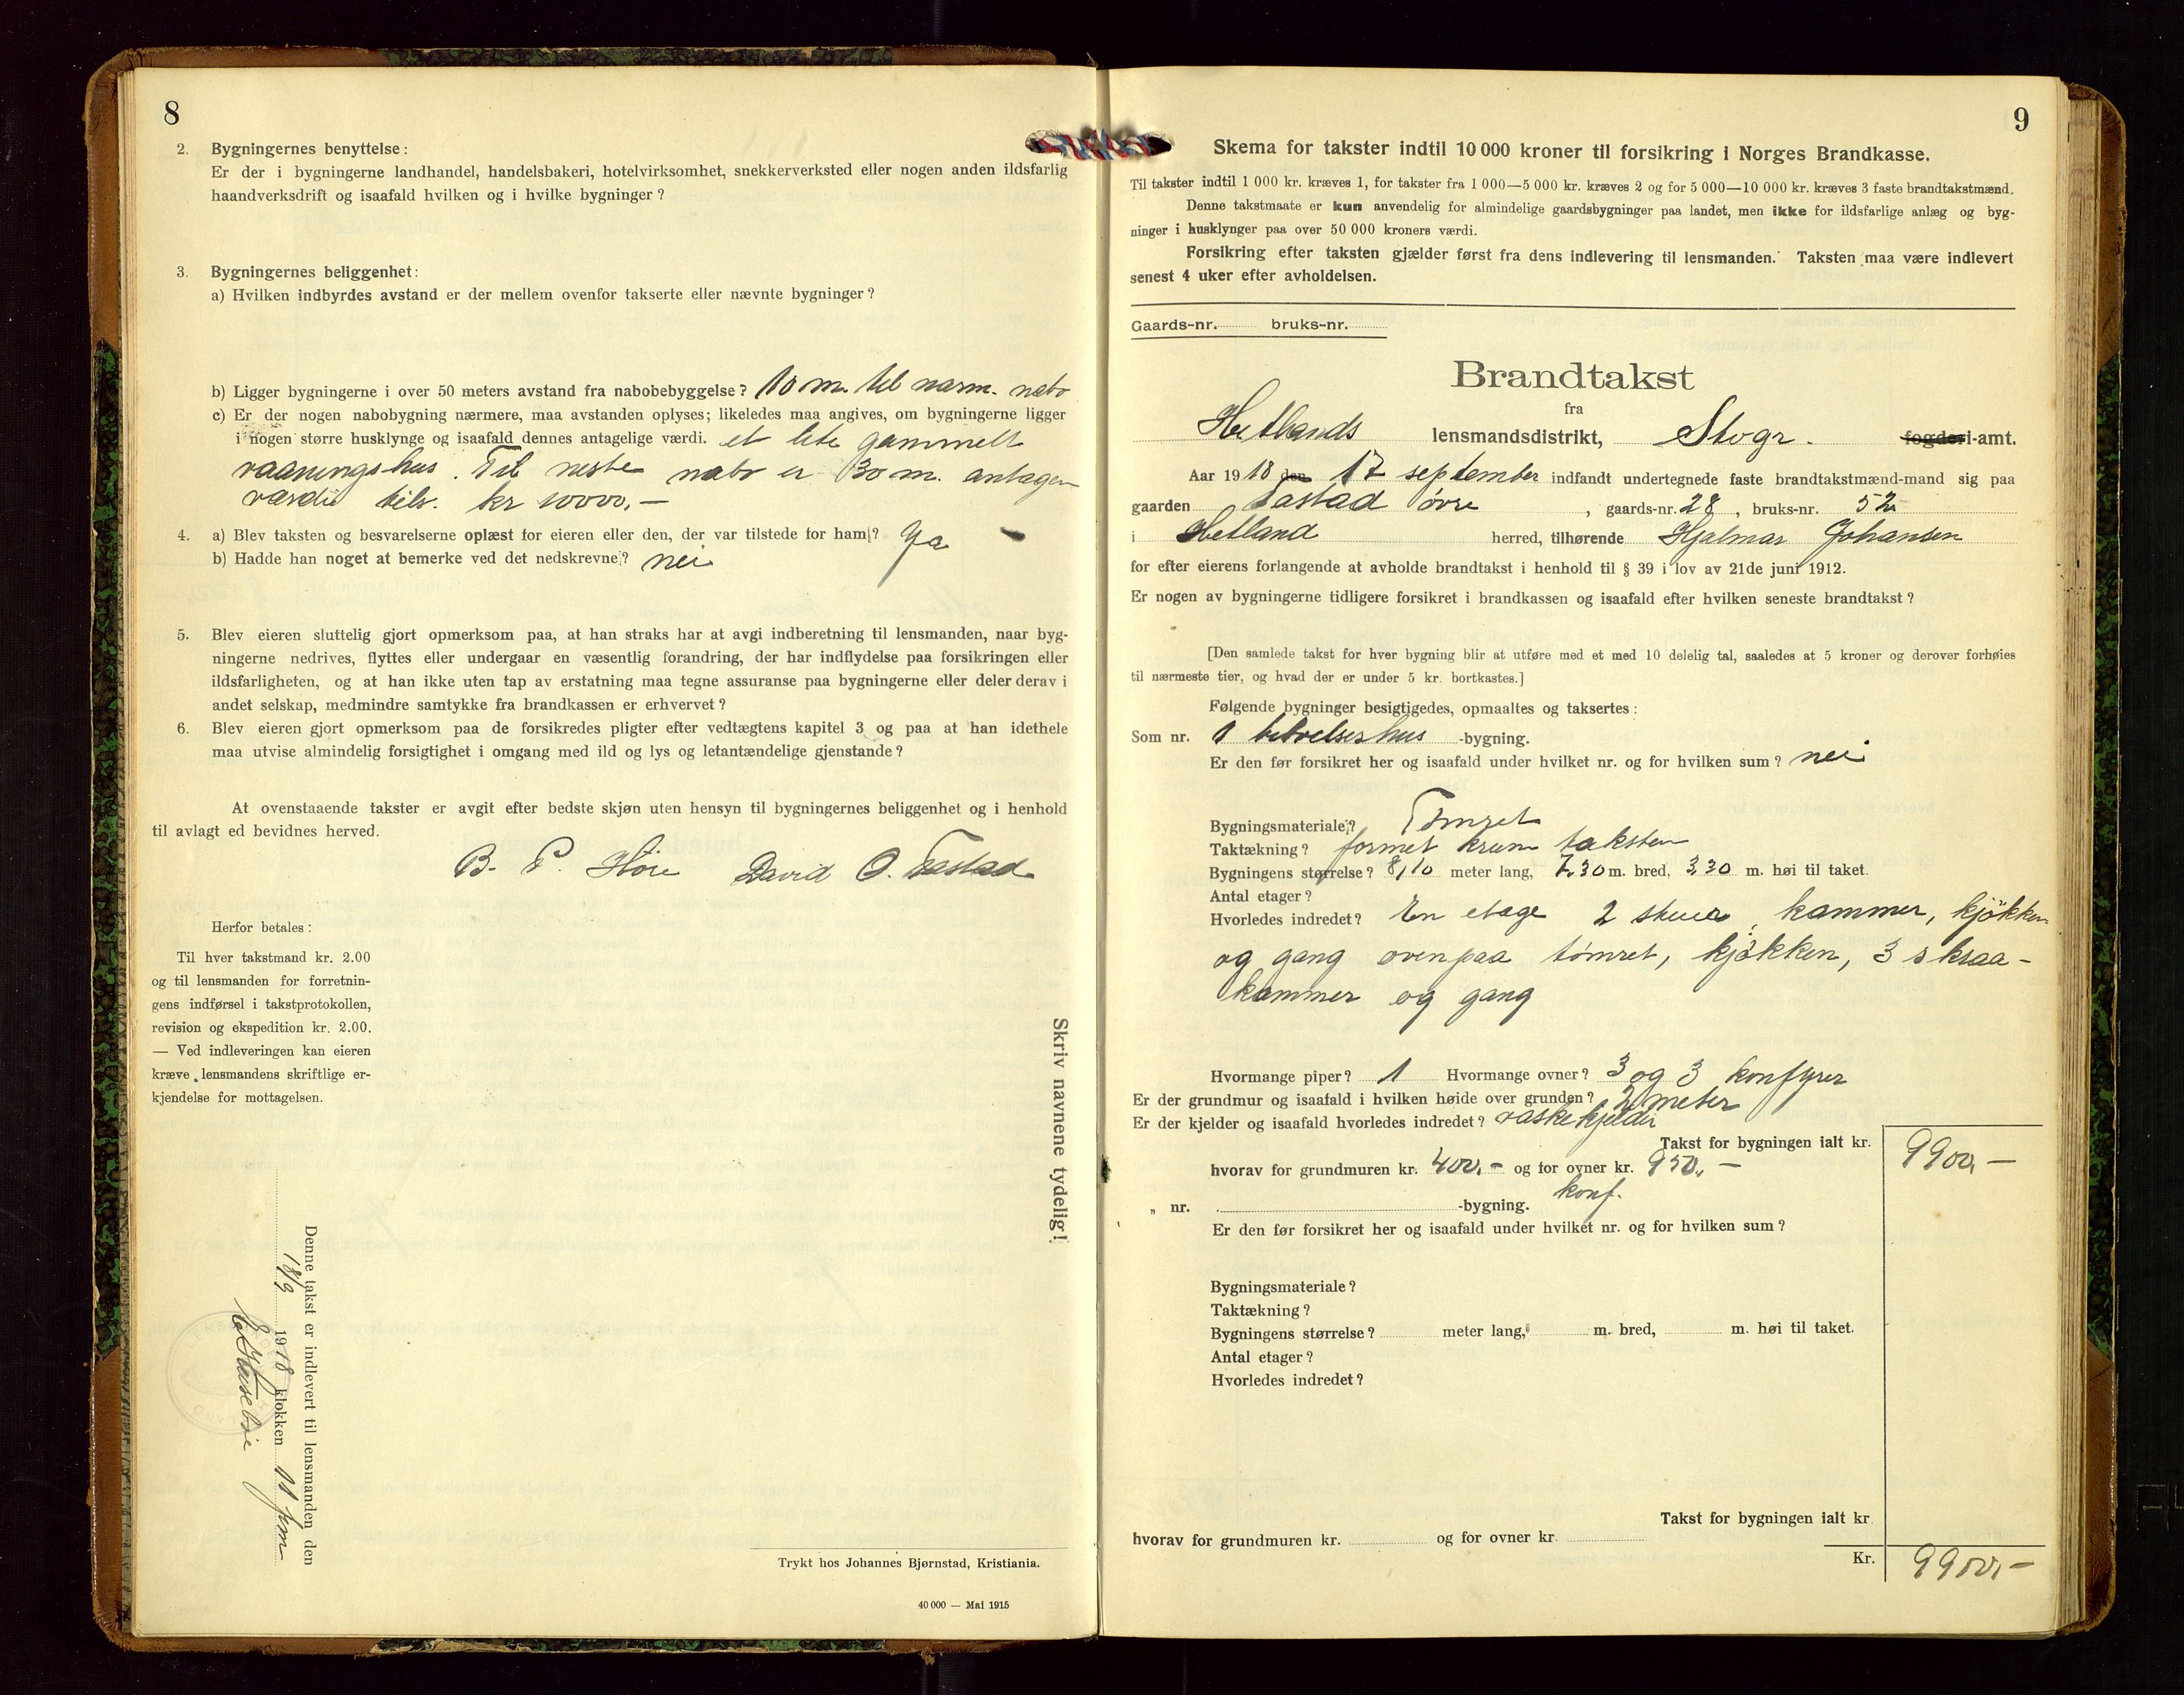 8
2. Bygningernes benyttelse:
Er der i bygningerne landhandel, handelsbakeri, hotelvirksomhet, snekkerverksted eller nogen anden ildsfarlig
haandverksdrift og isaafald hvilken og i hvilke bygninger?
3. Bygningernes beliggenhet:
a) Hvilken indbyrdes avstand er der mellem ovenfor takserte eller nævnte bygninger?
b) Ligger bygningerne i over 50 meters avstand fra nabobebyggelse? 10 m. til nærm. nabo
c) Er der nogen nabobygning nærmere, maa avstanden oplyses; likeledes maa angives, om bygningerne ligger
i nogen større husklynge og isaafald dennes antagelige værdi. et lite gammelt
vaaningshus. Til neste nabo er 30 m. antagen
værdi tils. kr 10000,-
4. a) Blev taksten og besvarelserne oplæst for eieren eller den, der var tilstede for ham? Ja
b) Hadde han noget at bemerke ved det nedskrevne? nei
5. Blev eieren sluttelig gjort opmerksom paa, at han straks har at avgi indberetning til lensmanden, naar byg-
ningerne nedrives, flyttes eller undergaar en væsentlig forandring, der har indflydelse paa forsikringen eller
ildsfarligheten, og at han ikke uten tap av erstatning maa tegne assuranse paa bygningerne eller deler derav i
andet selskap, medmindre samtykke fra brandkassen er erhvervet?
6. Blev eieren gjort opmerksom paa de forsikredes pligter efter vedtægtens kapitel 3 og paa at han idethele
maa utvise almindelig forsigtighet i omgang med ild og lys og letantændelige gjenstande?
At ovenstaaende takster er avgit efter bedste skjøn uten hensyn til bygningernes beliggenhet og i henhold
til avlagt ed bevidnes herved.
B. P. Høie David O. Tastad
Herfor betales:
Til hver takstmand kr. 2.00
og til lensmanden for forretnin-
gens indførsel i takstprotokollen,
revision og ekspedition kr. 2.00.
— Ved indleveringen kan eieren
kræve lensmandens skriftlige er-
kjendelse for mottagelsen.
Skriv navnene tydelig!
Denne takst er indlevert til lensmanden den
18/9 1918 klokken 11 fm
Trykt hos Johannes Bjørnstad, Kristiania.
40 000 — Mai 1915
9
Skema for takster indtil 10 000 kroner til forsikring i Norges Brandkasse.
Til takster indtil 1 000 kr. kræves 1, for takster fra 1 000—5 000 kr. kræves 2 og for 5 000—10 000 kr. kræves 3 faste brandtakstmænd.
Denne takstmaate er kun anvendelig for almindelige gaardsbygninger paa landet, men ikke for ildsfarlige anlæg og byg-
ninger i husklynger paa over 50 000 kroners værdi.
Forsikring efter taksten gjælder først fra dens indlevering til lensmanden. Taksten maa være indlevert
senest 4 uker efter avholdelsen.
Gaards-nr. bruks-nr.
Brandtakst
fra
Hetlands lensmandsdistrikt, Stvgr. fogderi-amt.
Aar 1918 den 17 september indfandt undertegnede faste brandtakstmænd-mand sig paa
gaarden Tastad øvre, gaards-nr. 28, bruks-nr. 52
i Hetland herred, tilhørende Hjalmar Johansen
for efter eierens forlangende at avholde brandtakst i henhold til § 39 i lov av 21de juni 1912.
Er nogen av bygningerne tidligere forsikret i brandkassen og isaafald efter hvilken seneste brandtakst?
[Den samlede takst for hver bygning blir at utføre med et med 10 delelig tal, saaledes at 5 kroner og derover forhøies
til nærmeste tier, og hvad der er under 5 kr. bortkastes.]
Følgende bygninger besigtigedes, opmaaltes og taksertes:
Som nr. 1 beboelseshus -bygning.
Er den før forsikret her og isaafald under hvilket nr. og for hvilken sum? nei
Bygningsmateriale? Tømret
Taktækning? formet krum taksten
Bygningens størrelse? 8,10 meter lang, 7.30 m. bred, 3,30 m. høi til taket.
Antal etager?
Hvorledes indredet? En etage 2 stuer, kammer, kjøkken
og gang ovenpaa tømret, kjøkken, 3 skraa-
kammer og gang
Hvormange piper? 1 Hvormange ovner? 3 og 3 konfyrer
Er der grundmur og isaafald i hvilken høide over grunden? 2 meter
Er der kjelder og isaafald hvorledes indredet? vaskekjelder
Takst for bygningen ialt kr. 9900,-
hvorav for grundmuren kr. 400,- og for ovner kr. 950,-
konf.
„ nr. -bygning.
Er den før forsikret her og isaafald under hvilket nr. og for hvilken sum?
Bygningsmateriale?
Taktækning?
Bygningens størrelse? meter lang, m. bred, m. høi til taket.
Antal etager?
Hvorledes indredet?
Takst for bygningen ialt kr
hvorav for grundmuren kr. og for ovner kr.
Kr. 9900,-